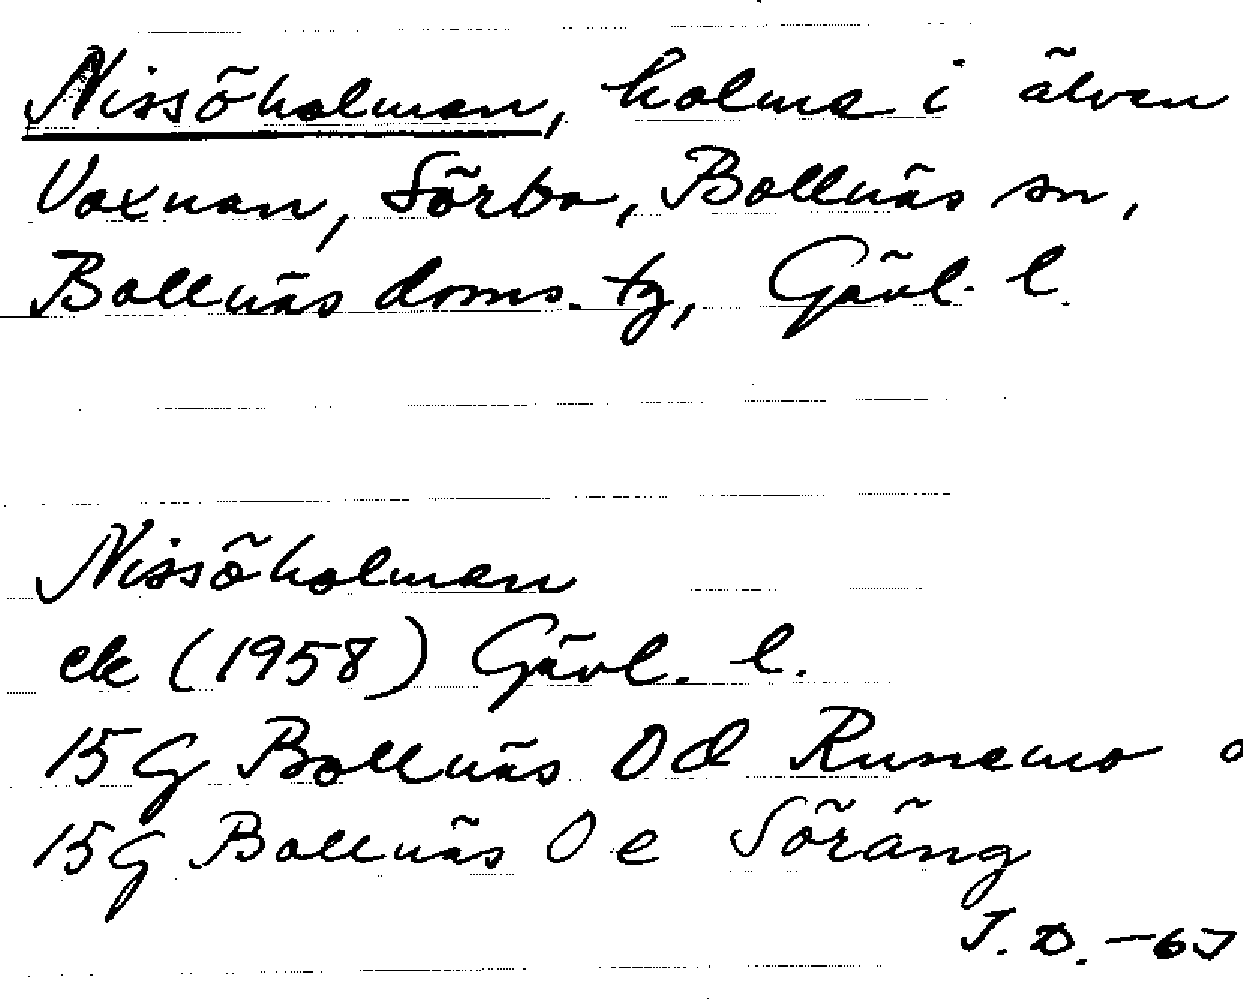 Nissöholmen, holme i älven
Voxnan, Sörbo, Bollnäs sn,
Bollnäs doms. tg, Gävl. l.
Nissöholmen
ek (1958) Gävl. l.
15G Bollnäs 0d Runemo o
15G Bollnäs 0e Söräng
J.D. -67